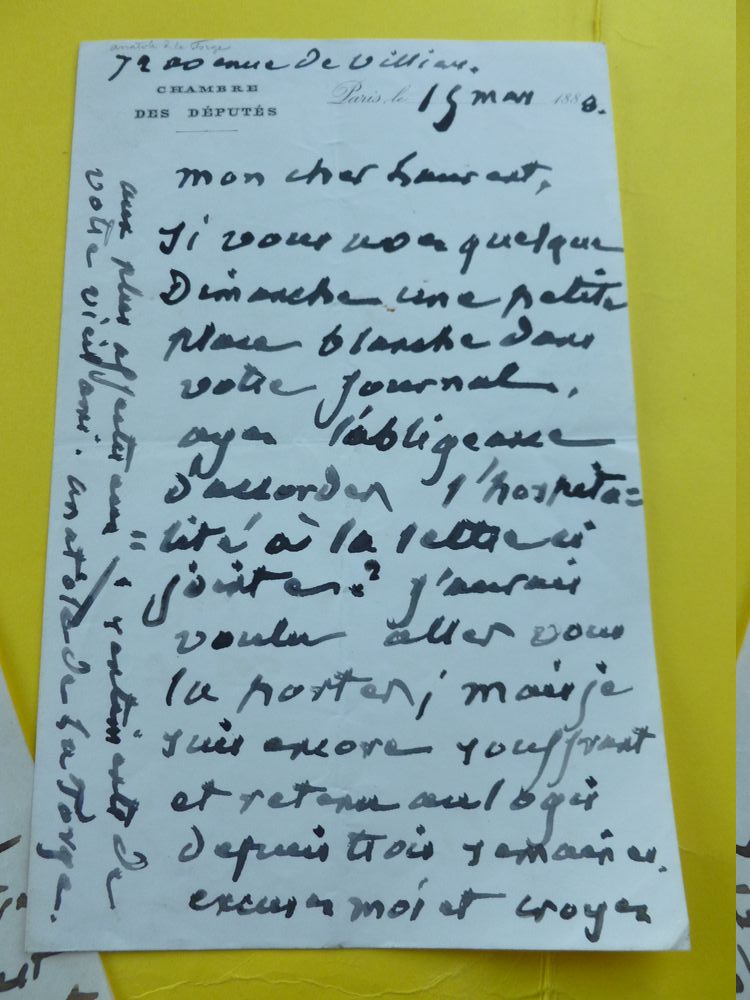 anatole de la Forge
72 avenue de Villiers.
CHAMBRE
DES DÉPUTÉS
Paris, le 15 mars 188
mon cher Laurent,
Si vous avez quelque
Dimanche une petite
place blanche dans
votre journal,
ayez l'obligeance
d'accorder l'hospita=
lité à la lettre ci
jointe? j'aurais
voulu aller vous
la porter; mais je
suis encore souffrant
et retenu au logis
depuis trois semaines.
excusez moi et croyez
aux plus affectueux sentiments de
votre vieil ami. anatole de La Forge.